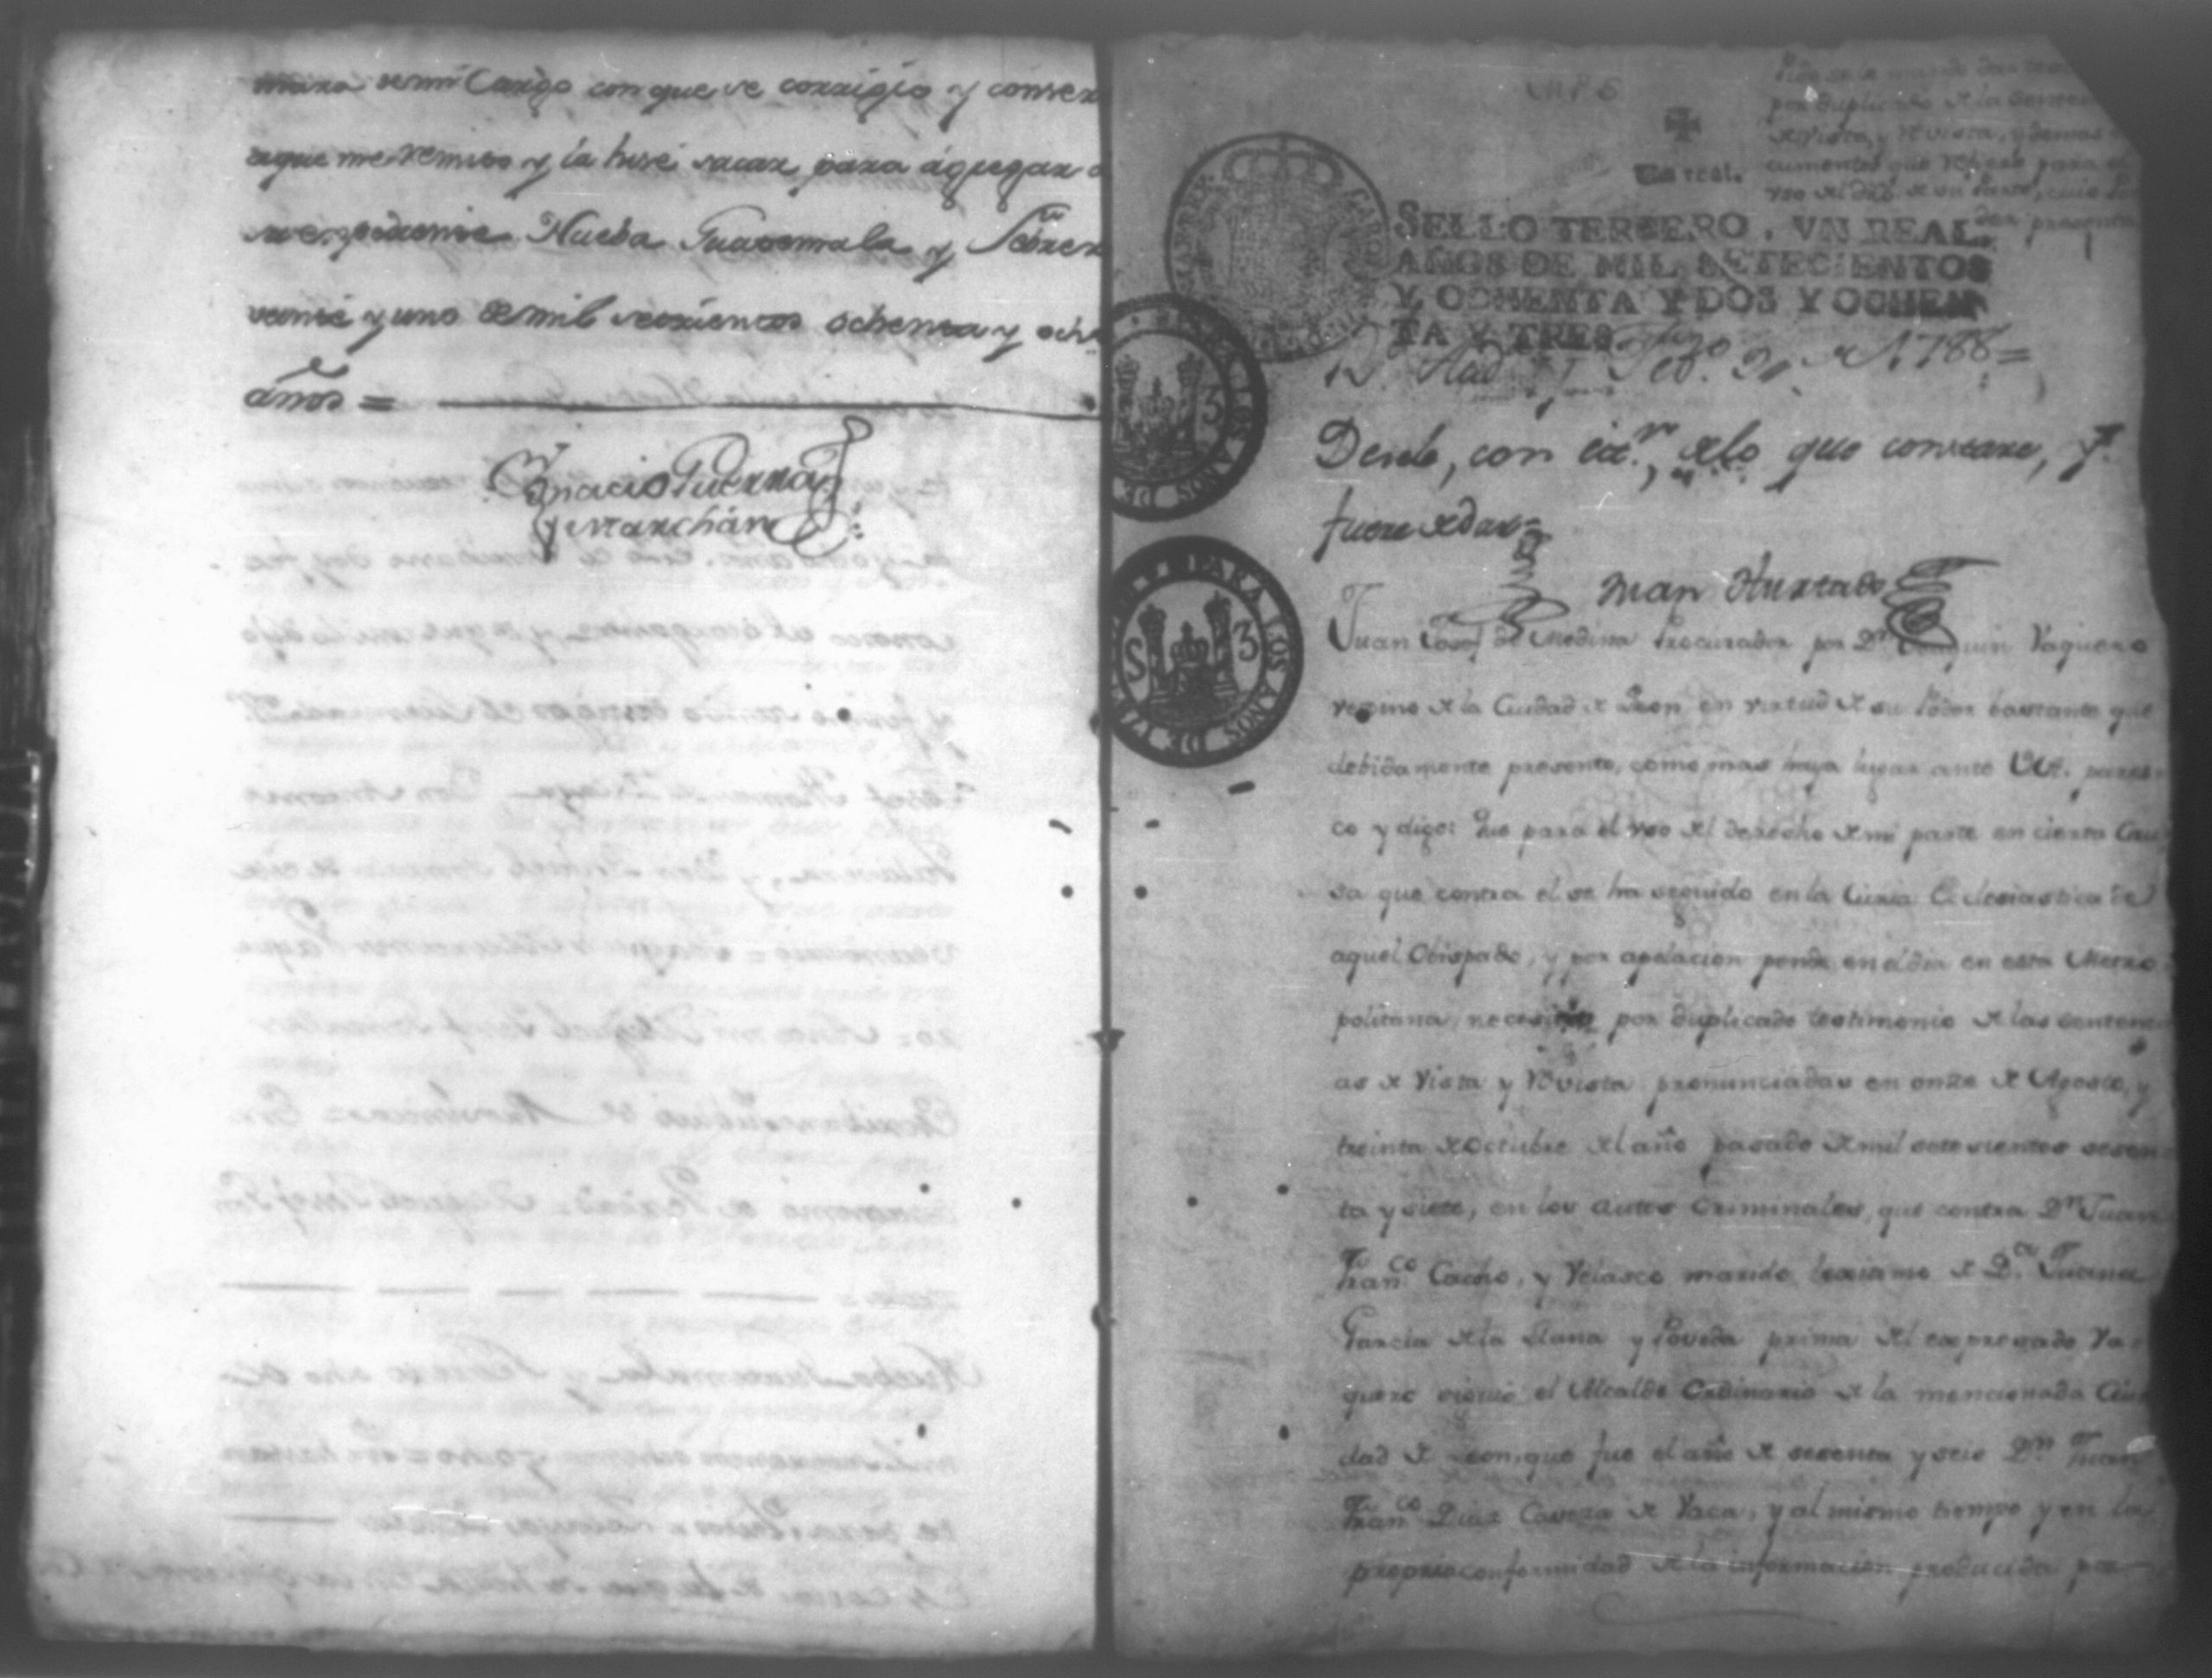 mara de mi Cargo con que se corrigio y concer
a que me remito y la hise sacar para agregar a
su expediente Nueba Guatemala y Febrer
veinte y uno de mil setecientos ochenta y och
años =
Ignacio Guerra
y Marchán
Un real.
SELLO TERCERO, VN REAL,
AÑOS DE MIL SETECIENTOS
Y OCHENTA Y DOS Y OCHEN
TA Y TRES
Pide se le mande dar
por duplicado de la senten
de vista, y revista, y demas
cumentos que refiere para el
vso del dro. de su parte, cuio Po
der presenta
Feb. 21 de 1788 =
Desele, con citn., de lo que constare, y
fuere de dar =
Juan Hurtado
PARA LOS AÑOS DE
S 3
Juan Josef de Medina Procurador por Dn. Joaquin Vaquero
vezino de la Ciudad de Leon en virtud de su Poder bastante que
debidamente presento, como mas haya lugar ante VA. pares
co y digo: Que para el vso del derecho de mi parte en cierta Cau
sa que contra el se ha seguido en la Curia Eclesiastica de
aquel Obispado, y por apelacion pende en el dia en esta Metro
politana, necesito por duplicado testimonio de las sentenc
as de Vista y Revista pronunciadas en onze de Agosto, y
treinta de Octubre del año pasado de mil setesientos sesen
ta y siete, en los autos Criminales, que contra Dn. Juan
Franco. Cacho, y Velasco marido lexitimo de Da. Juana
Garcia de la Llana y Poveda prima del expresado Va
quero siguió el Alcalde Ordinario de la mencionada Ciu
dad de Leon, que fue el año de sesenta y seis Dn. Juan
Franco. Diaz Caveza de Vaca, y al mismo tiempo y en la
propria conformidad de la informacion producida por